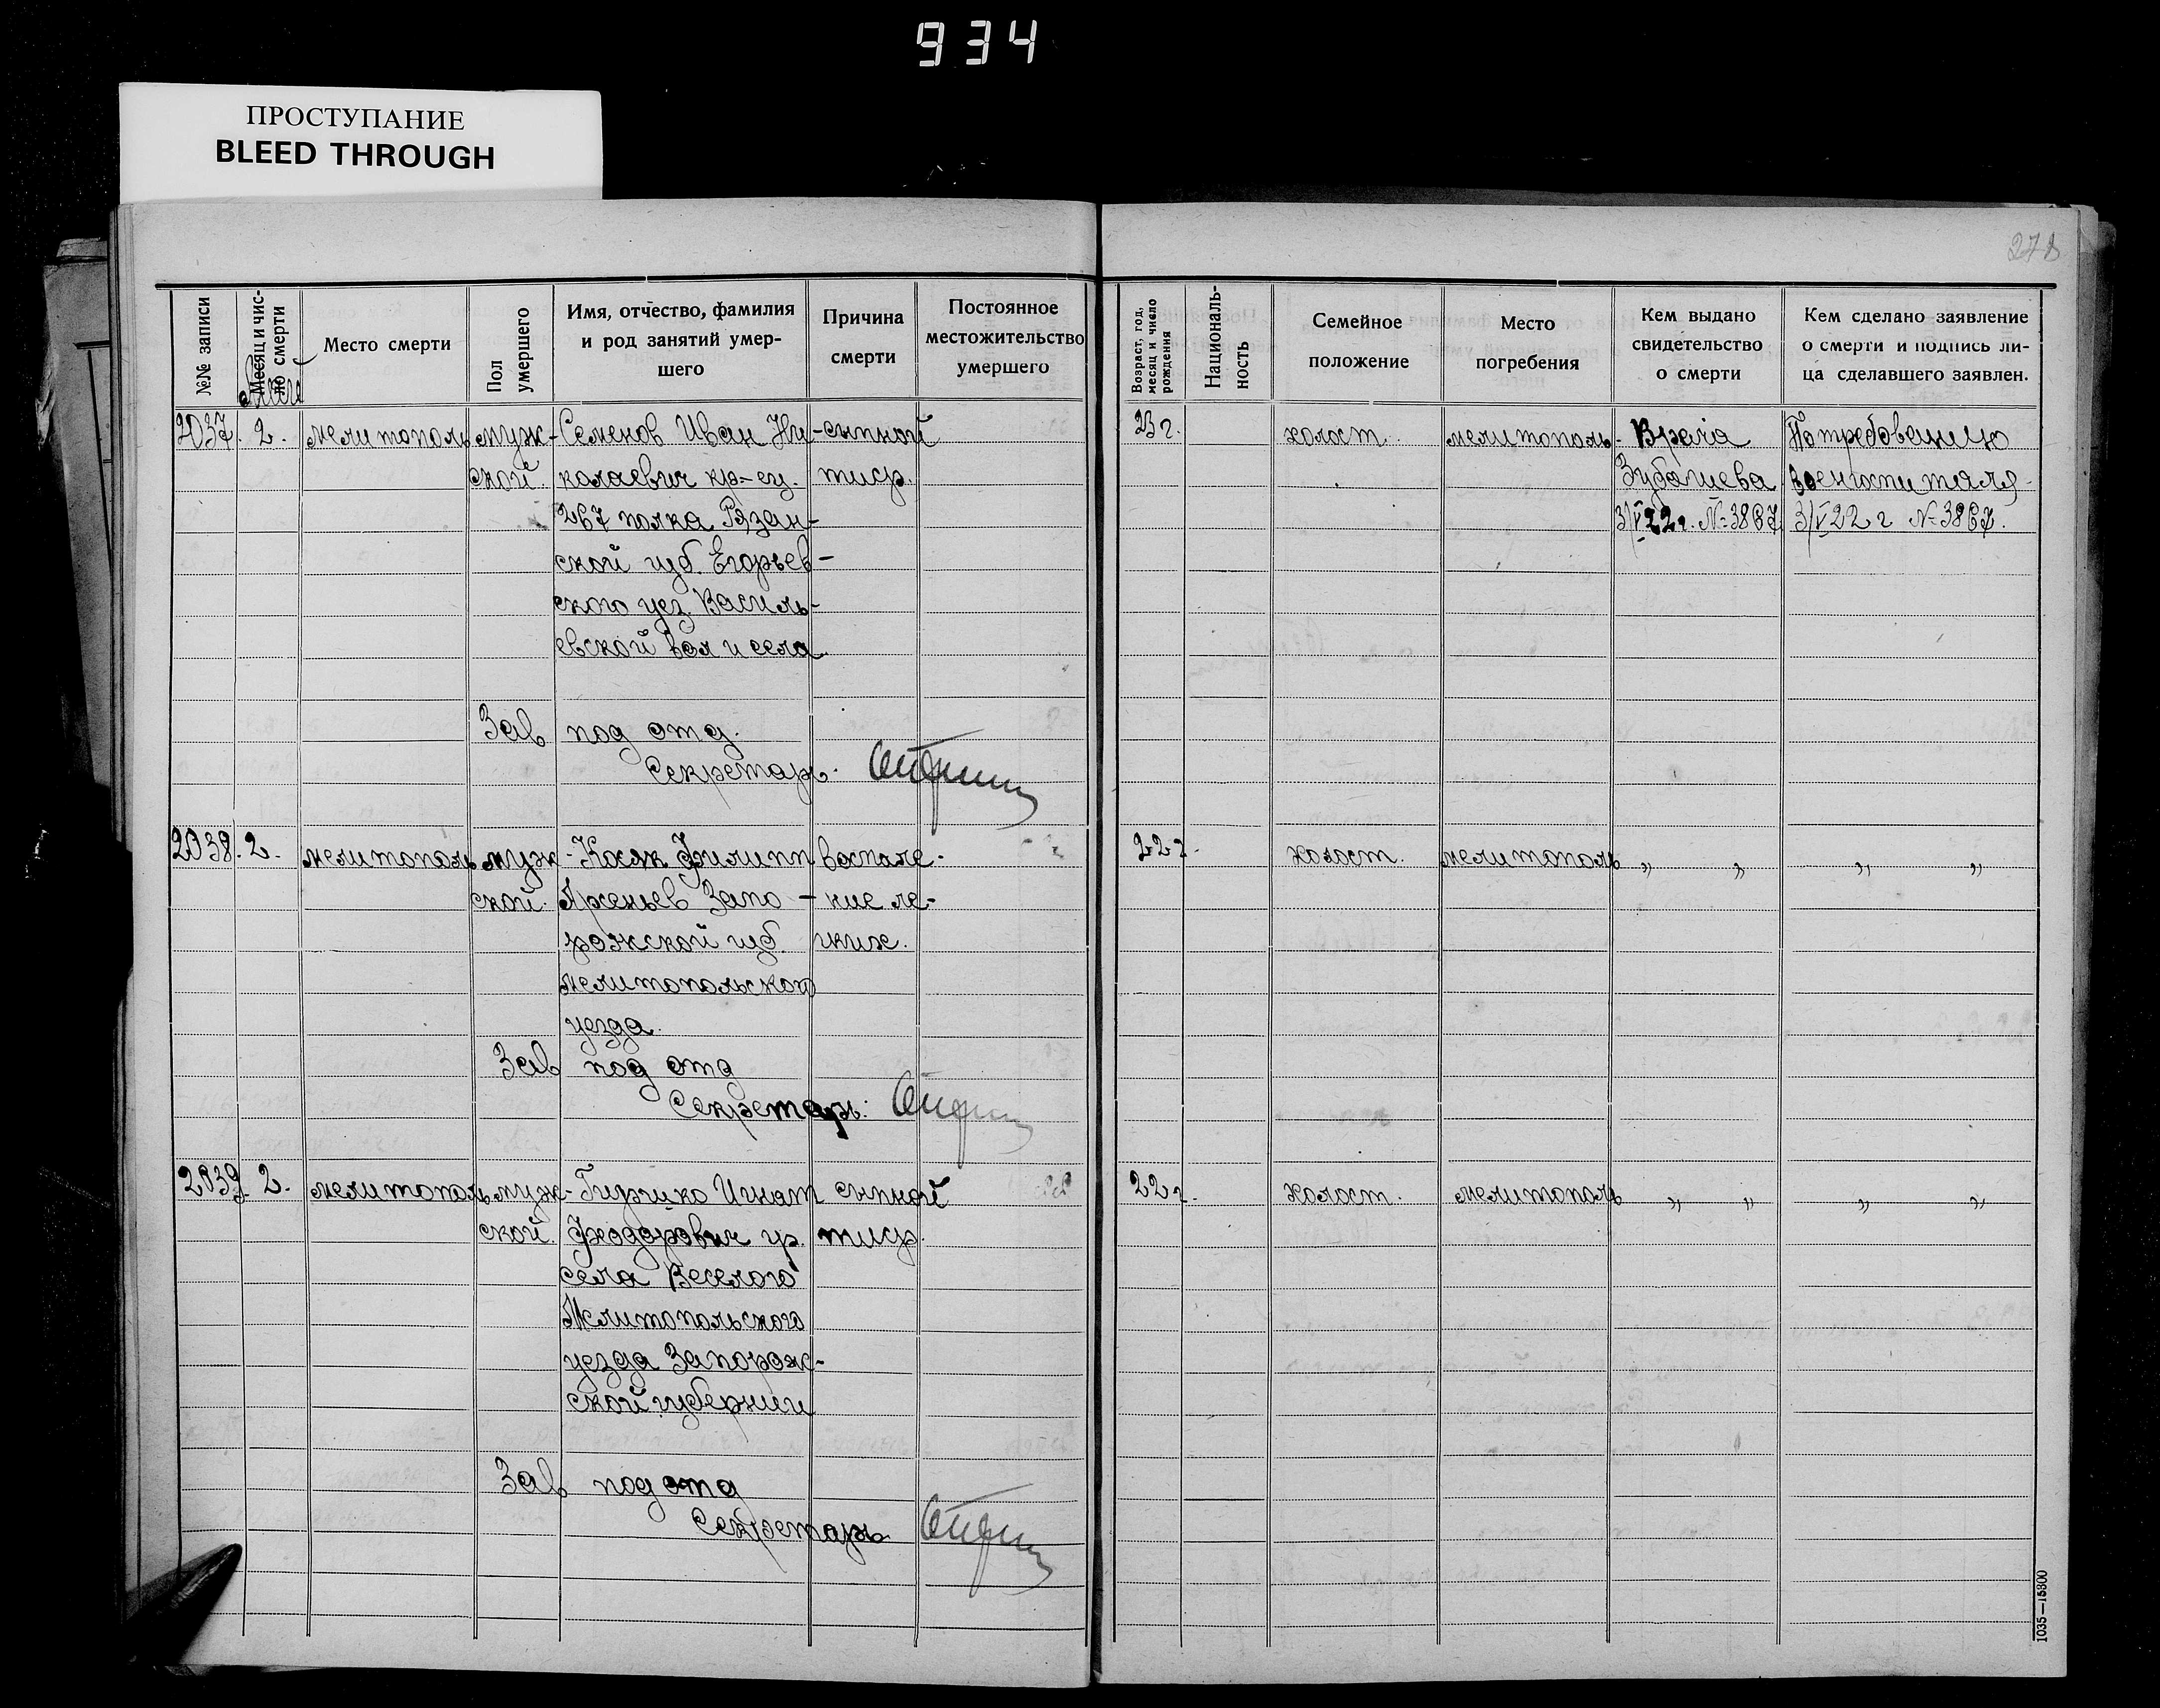 934
ПРОСТУПАНИЕ
BLEED THROUGH
278
№№ записи
Месяц и чис-
ло смерти
Место смерти
Пол
умершего
Имя, отчество, фамилия
и род занятий умер-
шего
Причина
смерти
Постоянное
местожительство
умершего
Возраст, год,
месяц и число
рождения
Националь-
ность
Семейное
положение
Место
погребения
Кем выдано
свидетельство
о смерти
Кем сделано заявление
о смерти и подпись ли-
ца сделавшего заявлен.
2037. 2. мелитополь муж- Семенов Иван Ни- сыпной 23 г. холост. мелитополь- Врача По требованию
ской. колаевич кр-ец. тиф. Зубашева Военгоспиталя
267 полка Рязан- 3/V 22 г. № 3867 3/V 22 г № 3867.
ской губ. Егорьев-
ского уез. Василь-
евской вол и села
Зав под отд.
Секретарь.
2038. 2. мелитополь муж- Косяк Филипп воспале- 22 г. холост. мелитополь „ „ „ „
ской. Арсеньев Запо- ние ле-
рожской губ. гких.
мелитопольского
уезда.
Зав под отд
Секретарь.
2039. 2. мелитополь муж- Гиржко Игнат сыпной 22 г. холост. мелитополь „ „ „ „
ской. Феодорович гр. тиф.
села Веселого
Мелитопольского
уезда Запорож-
ской губернии
Зав под отд
Секретарь
1035—15800